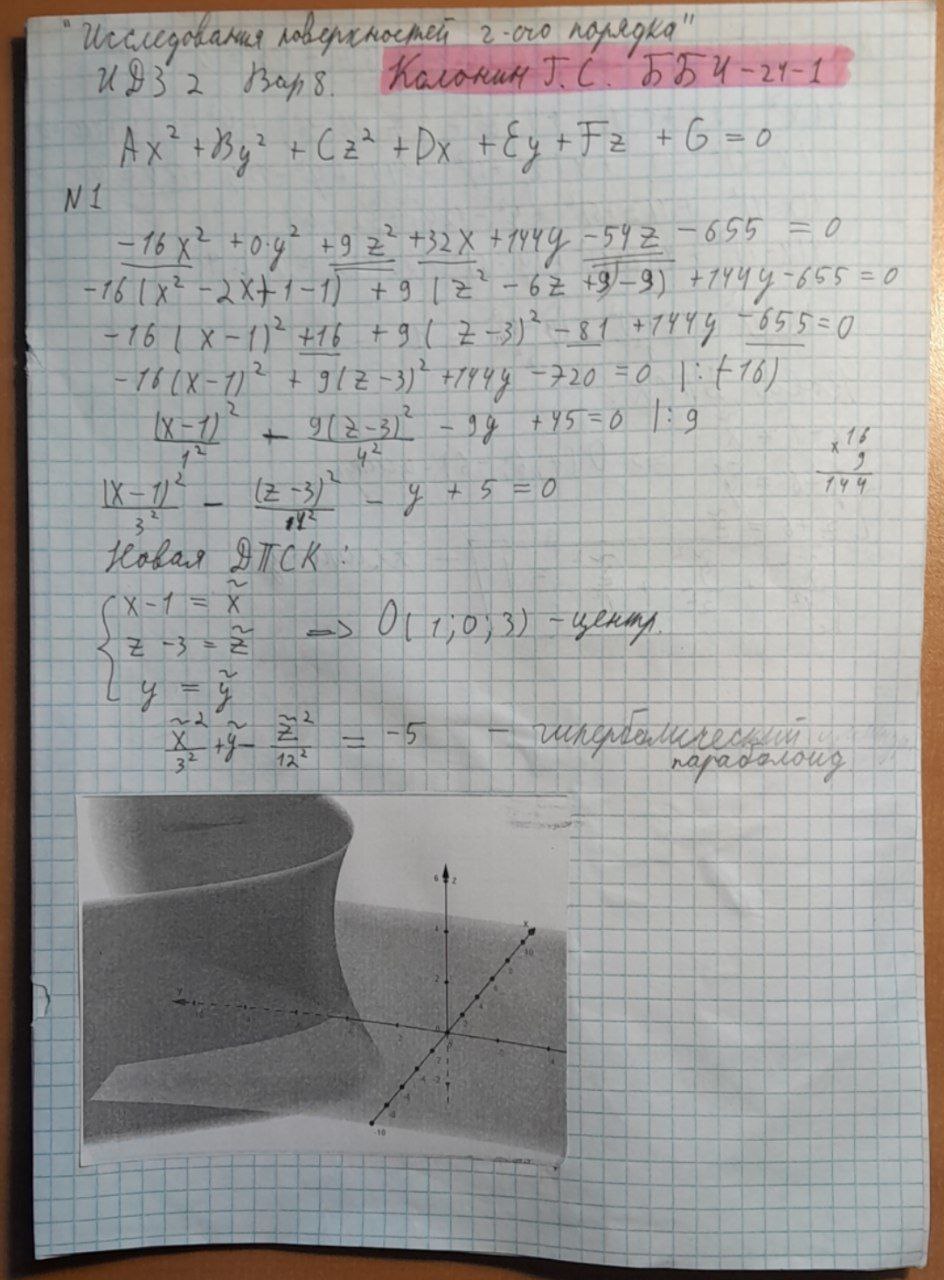 "Исследования поверхностей 2-ого порядка"
ИДЗ 2 Вар 8. Колонин Г.С. ББИ-24-1
Ax² + By² + Cz² + Dx + Ey + Fz + G = 0
N1
-16x² + 0·y² + 9z² + 32x + 144y - 54z - 655 = 0
-16(x² - 2x + 1 - 1) + 9(z² - 6z + 9 - 9) + 144y - 655 = 0
-16(x-1)² + 16 + 9(z-3)² - 81 + 144y - 655 = 0
-16(x-1)² + 9(z-3)² + 144y - 720 = 0 |:(-16)
(x-1)²/1² - 9(z-3)²/4² - 9y + 45 = 0 |: 9
x 16
9
144
(x-1)²/3² - (z-3)²/4² - y + 5 = 0
Новая ДПСК:
{ x-1 = x̃
z-3 = z̃ => O(1;0;3) - центр.
y = ỹ
x̃²/3² + ỹ - z̃²/12² = -5 - гиперболический
параболоид
6 z
4
2
x
10
y
-10